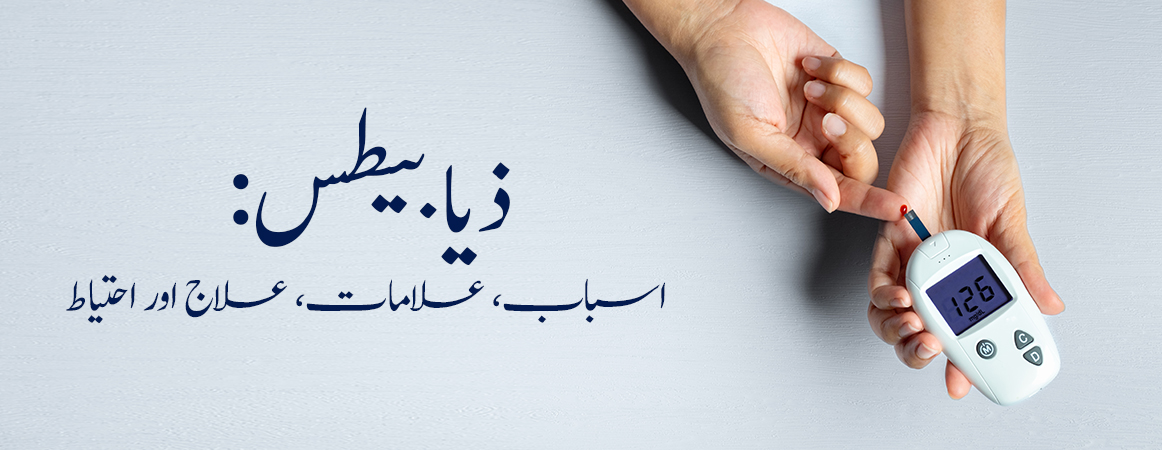 ذیابیطس:
اسباب، علامات، علاج اور احتیاط
126
mg/dL
M
C
D